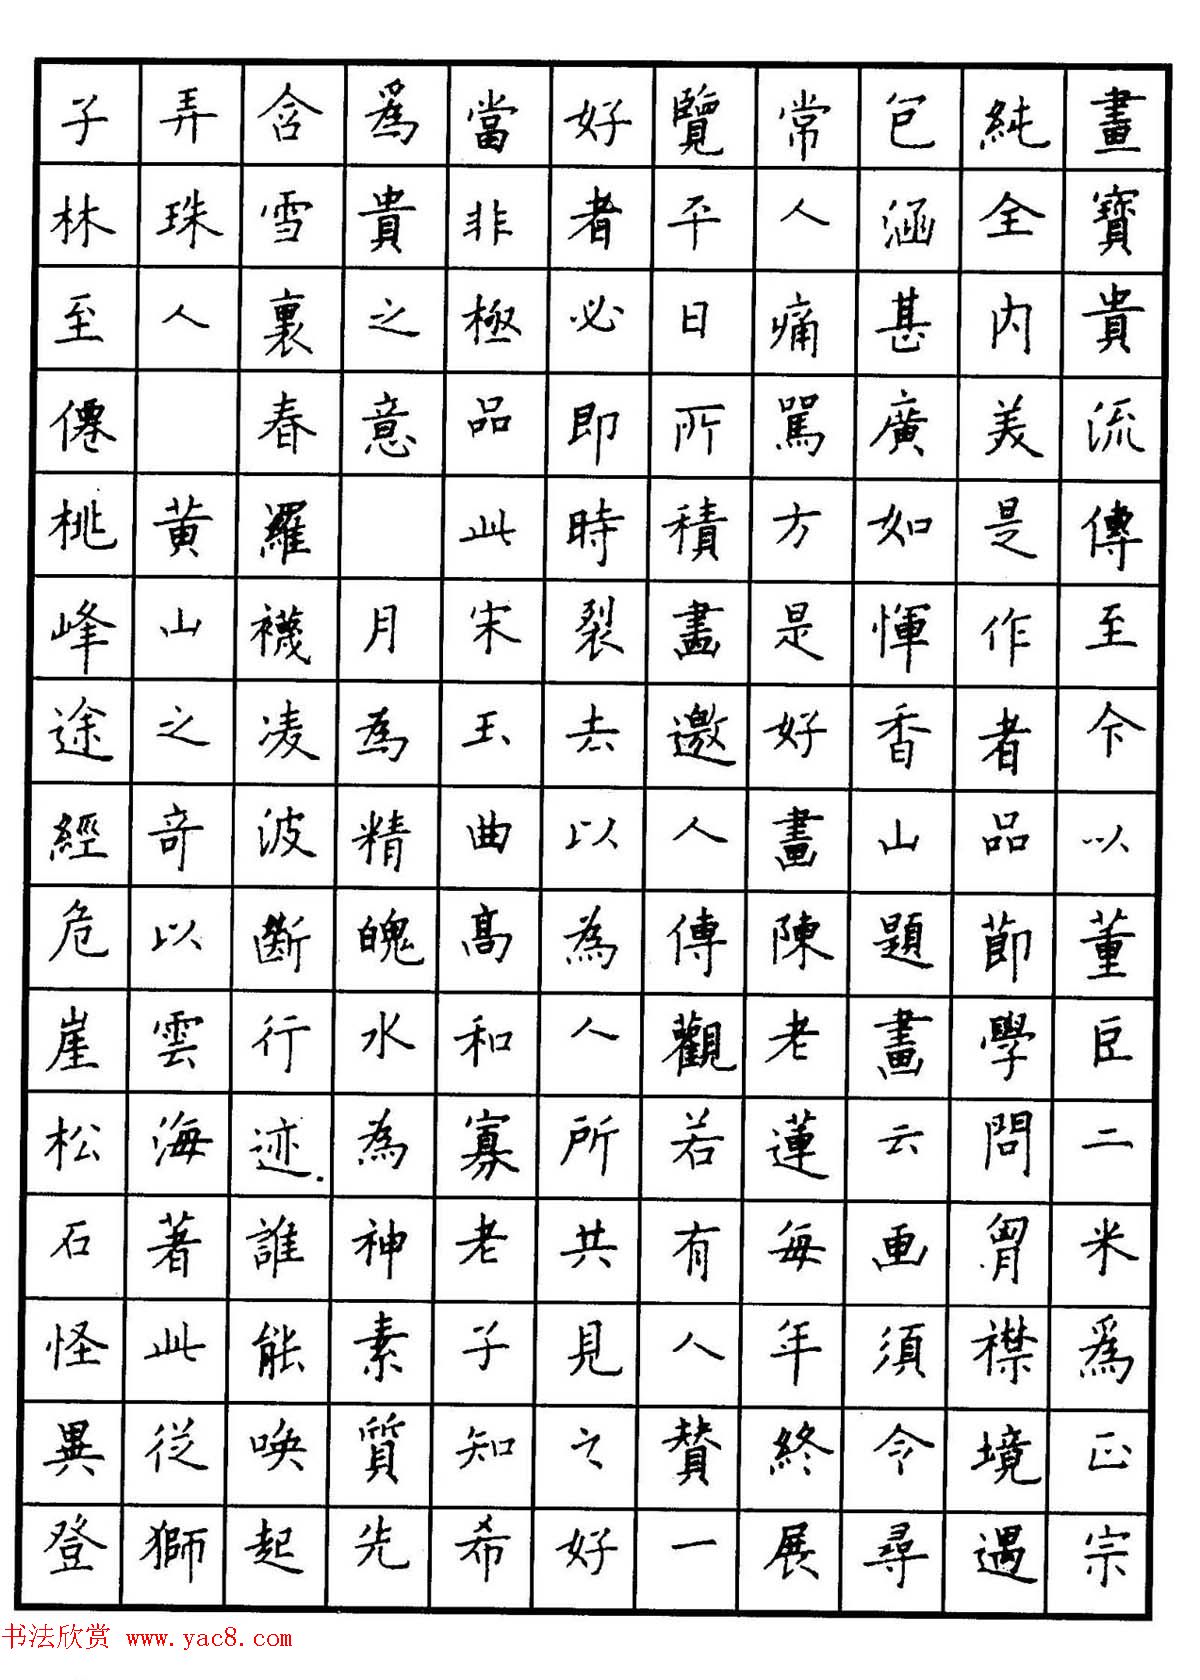 畫寶貴流傳至今以董巨二米爲正宗
純全内美是作者品節學問胷襟境遇
包涵甚廣如惲香山題畫云画須令尋
常人痛駡方是好畫陳老蓮每年終展
覽平日所積畫邀人傳觀若有人賛一
好者必即時裂去以為人所共見之好
當非極品此宋玉曲高和寡老子知希
爲貴之意 月為精魄水為神素質先
含雪裏春羅襪凌波斷行迹.誰能唤起
弄珠人 黄山之奇以雲海著此從獅
子林至僊桃峰途經危崖松石怪異登
书法欣赏 www.yac8.com